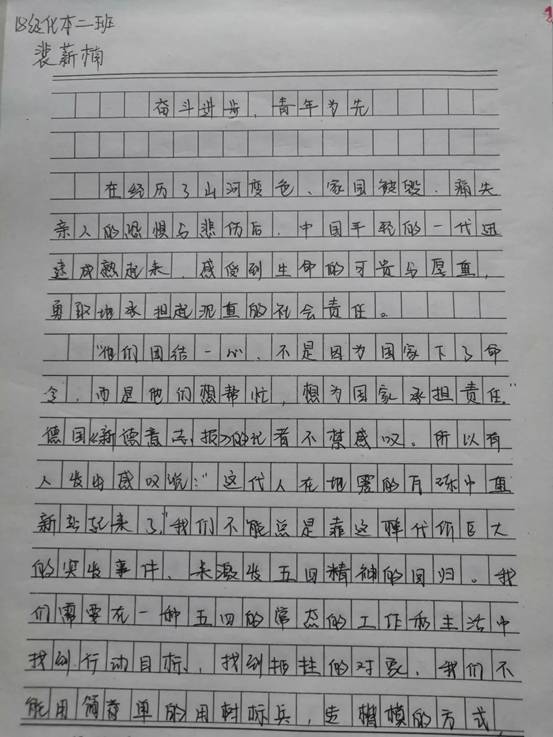 18经化本二班
裴薪楠
奋斗进步,青年为先
在经历了山河变色、家园被毁、痛失
亲人的恐惧与悲伤后,中国年轻的一代迅
速成熟起来,感受到生命的可贵与厚重,
勇敢地承担起沉重的社会责任。
“他们团结一心,不是因为国家下了命
令,而是他们想帮忙,想为国家承担责任。”
德国《新德意志报》的记者不禁感叹。所以有
人发出感叹说:“这代人在地震的白
新站起来了。”我们不能总是靠这样代价巨大
的突发事件、来激发五四精神的回归。我
们需要在一种五四的常态的工作和生活中
找到行动目标、找到牺牲的对象,我们不
能用简单的用树标兵,造楷模的方式